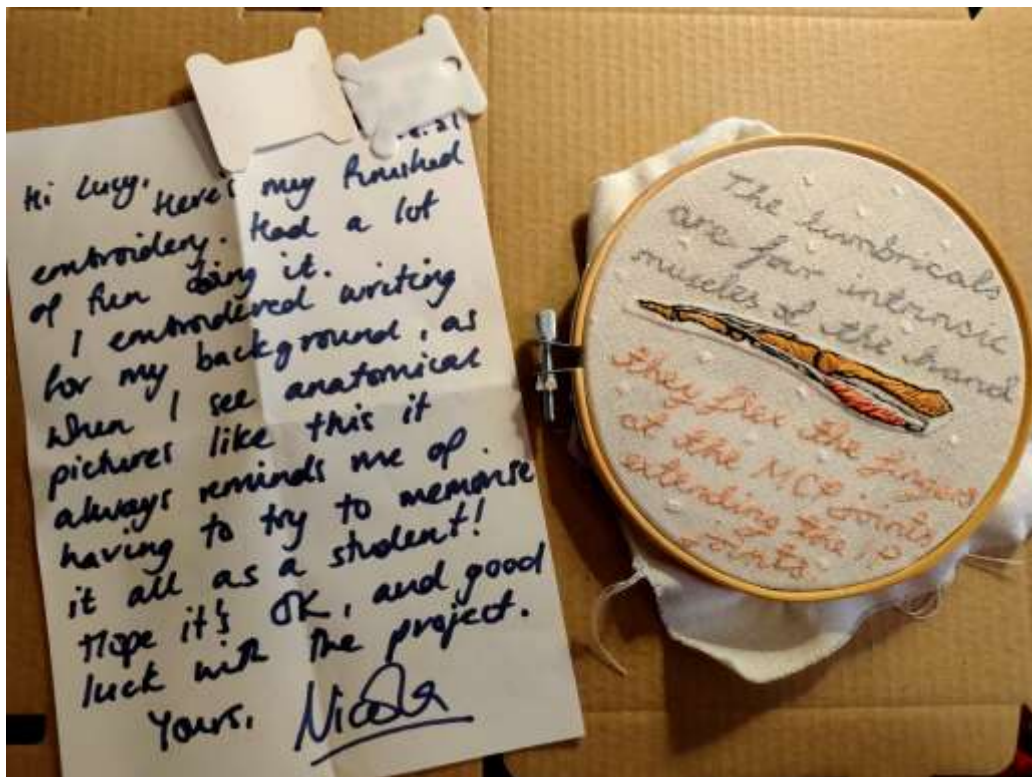 Hi Lucy,
Here's my finished
embroidery. Had a lot
of fun doing it.
I embroidered writing
for my background, as
when I see anatomical
pictures like this it
always reminds me of
having to try to memorise
it all as a student!
Hope it's OK, and good
luck with the project.
Yours,
Nicola
The lumbricals
are four intrinsic
muscles of the hand
they flex the fingers
at the MCP joints
extending the IP
joints